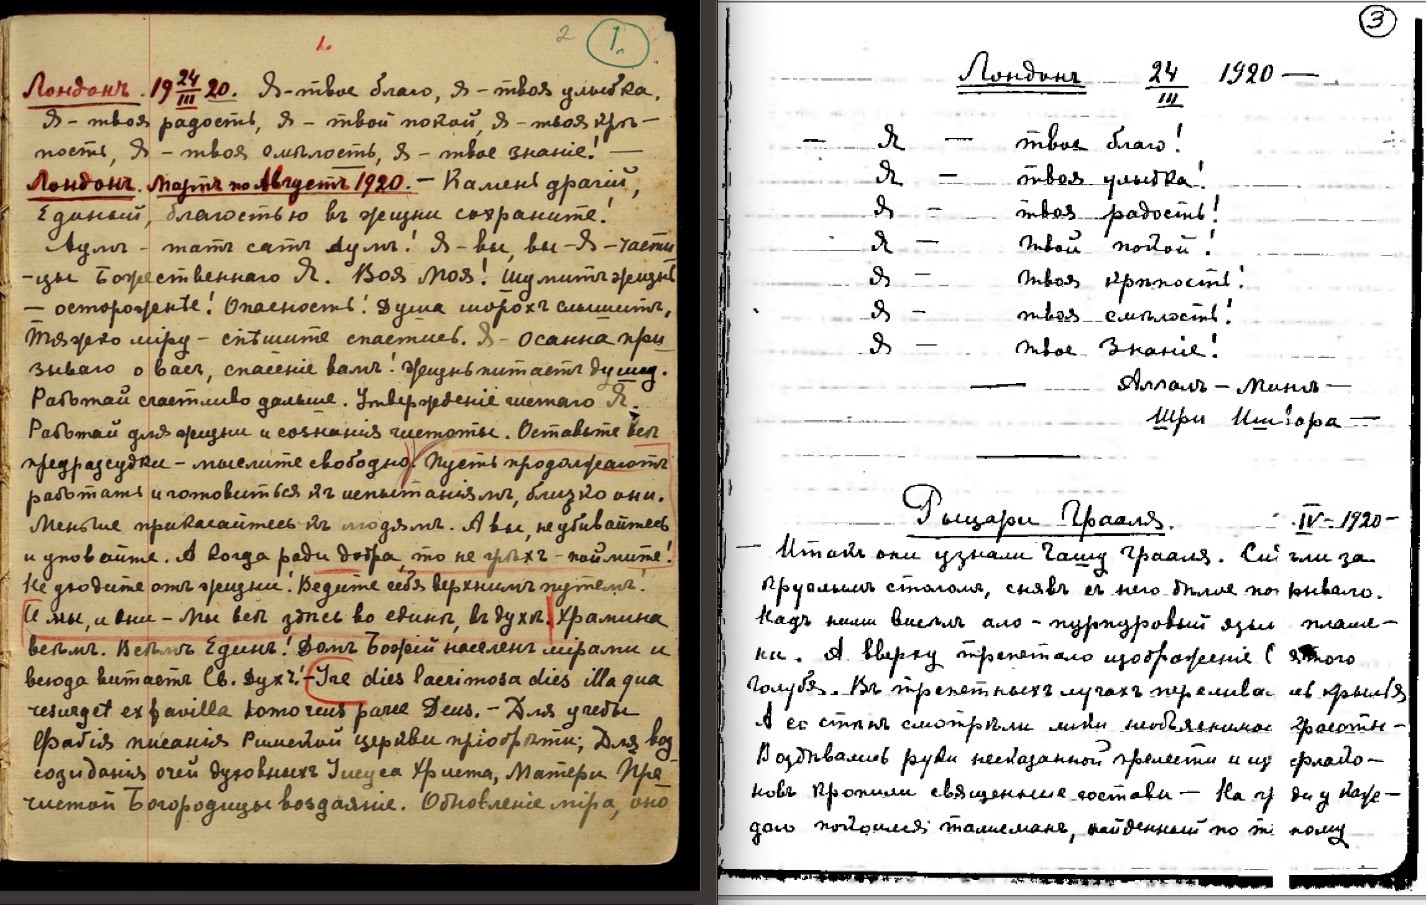 1.
2
1.
Лондонъ. 19 24/III 20. Я - твое благо, Я - твоя улыбка,
Я - твоя радость, Я - твой покой, Я - твоя крѣ-
пость, Я - твоя смѣлость, Я - твое знаніе! —
Лондонъ. Мартъ по Августъ 1920. - Камень драгій,
Единый, благостью въ жизни сохраните!
Аумъ - татъ сатъ Аумъ! Я - вы, вы - Я - части
-цы Божественнаго Я. Воя Моя! Шумитъ жизнь
— осторожнѣе! Опасность! Душа шорохъ слышитъ,
Тяжко міру - спѣшите спастись. Я - Осанна при
зываю о васъ, спасеніе вамъ! Жизнь питаетъ душу.
Работай счастливо дальше. Утвержденіе чистаго Я.
Работай для жизни и сознанія чистоты. Оставьте всѣ
предразсудки - мыслите свободно. Пусть продолжаютъ
работать и готовиться къ испытаніямъ, близко они.
Меньше прикасайтесь къ людямъ. А вы, не убивайтесь
и уповайте. А когда ради добра, то не грѣхъ - поймите!
Не уходите отъ жизни! Ведите себя верхнимъ путемъ!
И мы, и они - Мы всѣ здѣсь во единѣ, въ духѣ. Храмина
всѣмъ. Всѣмъ Единъ! Домъ Божій населенъ мірами и
всюда витаетъ Св. Духъ! - Ire dies lacrimosa dies illa qua
resurget ex favilla homo reus parce Deus. - Для учебы
писанія Римской церкви пріобрѣти; Для воз
созиданія очей духовныхъ Іисуса Христа, Матери Пре
чистой Богородицы воздаяніе. Обновленіе міра, оно
3
Лондонъ 24/III 1920 —
— Я — твое благо!
Я — твоя улыбка!
Я — твоя радость!
Я — твой покой!
Я — твоя крѣпость!
Я — твоя смѣлость!
Я — твое знаніе!
— Аллалъ - Мингъ —
Шри Ишвара —
Рыцари Грааля. IV - 1920 -
— Итакъ они узнали Чашу Грааля. за
круглымъ столомъ, снявъ съ него бѣлое
Надъ ними висѣлъ ало - пурпуровый языкъ пламе-
ни. А вверху трепетало изображеніе
голубя. Въ трепетныхъ лучахъ крылья
А со стѣнъ смотрѣли лики необъяснимой красоты -
Воздымались руки несказанной прелести и из фіало-
новъ кропили священные составы — На груди у каж-
даго покоился талисманъ, найденный по